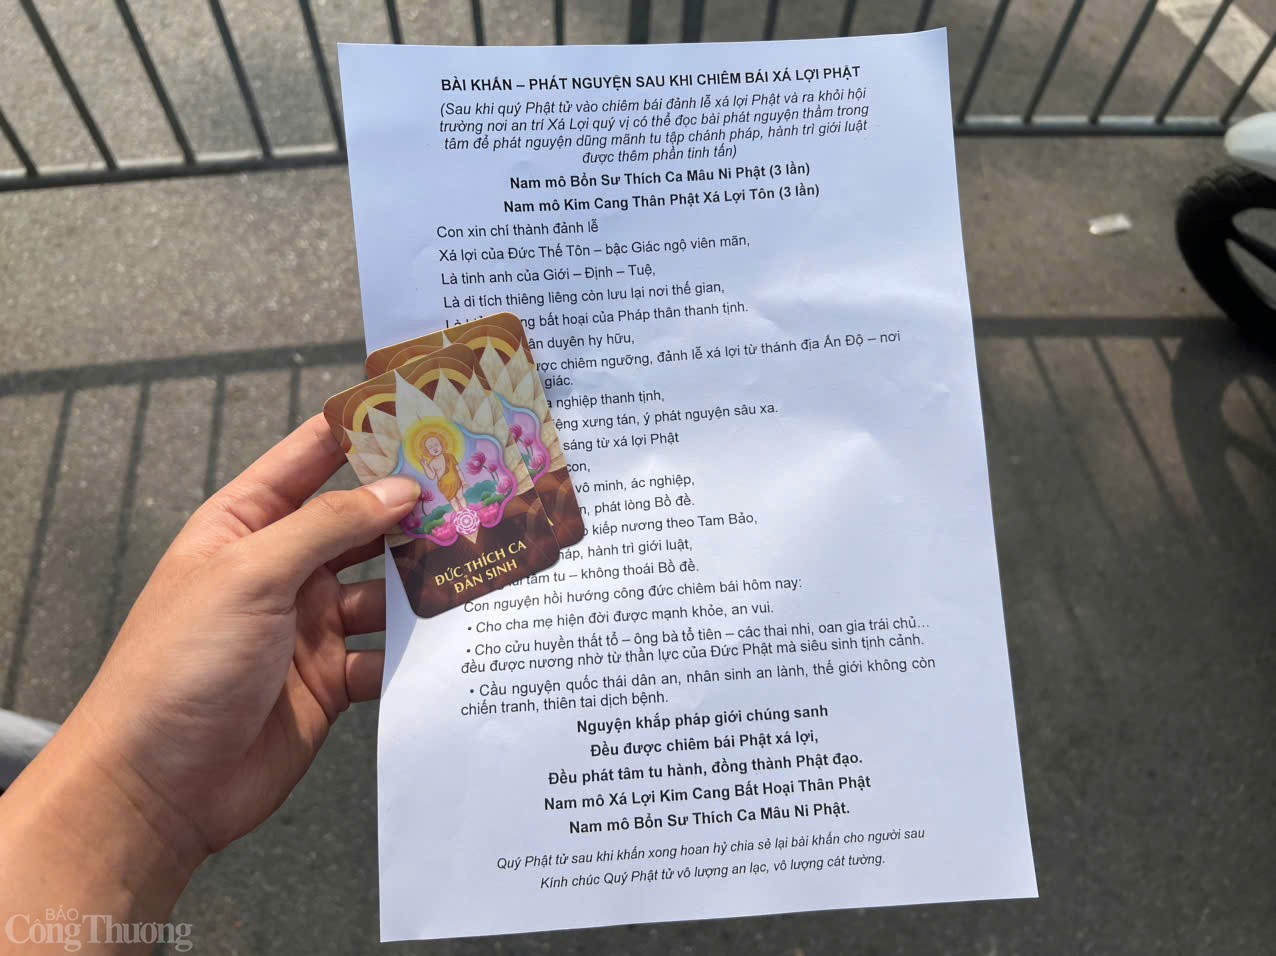 BÀI KHẤN – PHÁT NGUYỆN SAU KHI CHIÊM BÁI XÁ LỢI PHẬT
(Sau khi quý Phật tử vào chiêm bái đảnh lễ xá lợi Phật và ra khỏi hội
trường nơi an trí Xá Lợi quý vị có thể đọc bài phát nguyện thầm trong
tâm để phát nguyện dũng mãnh tu tập chánh pháp, hành trì giới luật
được thêm phần tinh tấn)
Nam mô Bổn Sư Thích Ca Mâu Ni Phật (3 lần)
Nam mô Kim Cang Thân Phật Xá Lợi Tôn (3 lần)
Con xin chí thành đảnh lễ
Xá lợi của Đức Thế Tôn – bậc Giác ngộ viên mãn,
Là tinh anh của Giới – Định – Tuệ,
Là di tích thiêng liêng còn lưu lại nơi thế gian,
bất hoại của Pháp thân thanh tịnh.
duyên hy hữu,
chiêm ngưỡng, đảnh lễ xá lợi từ thánh địa Ấn Độ – nơi
giác.
nghiệp thanh tịnh,
xưng tán, ý phát nguyện sâu xa.
sáng từ xá lợi Phật
con,
vô minh, ác nghiệp,
phát lòng Bồ đề.
kiếp nương theo Tam Bảo,
hành trì giới luật,
tâm tu – không thoái Bồ đề.
Con nguyện hồi hướng công đức chiêm bái hôm nay:
• Cho cha mẹ hiện đời được mạnh khỏe, an vui.
• Cho cửu huyền thất tổ – ông bà tổ tiên – các thai nhi, oan gia trái chủ…
đều được nương nhờ từ thần lực của Đức Phật mà siêu sinh tịnh cảnh.
• Cầu nguyện quốc thái dân an, nhân sinh an lành, thế giới không còn
chiến tranh, thiên tai dịch bệnh.
Nguyện khắp pháp giới chúng sanh
Đều được chiêm bái Phật xá lợi,
Đều phát tâm tu hành, đồng thành Phật đạo.
Nam mô Xá Lợi Kim Cang Bất Hoại Thân Phật
Nam mô Bổn Sư Thích Ca Mâu Ni Phật.
Quý Phật tử sau khi khấn xong hoan hỷ chia sẻ lại bài khấn cho người sau
Kính chúc Quý Phật tử vô lượng an lạc, vô lượng cát tường.
ĐỨC THÍCH CA
ĐẢN SINH
BÁO
Công Thương